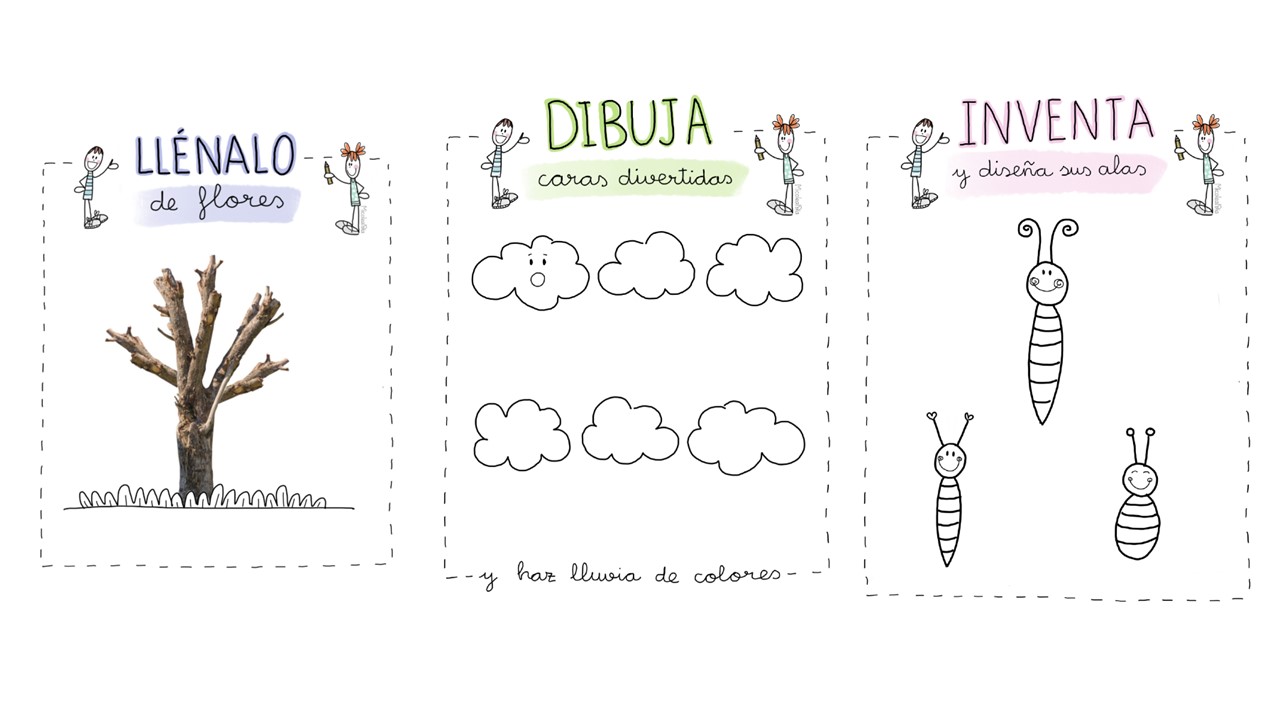 LLÉNALO
de flores
DIBUJA
caras divertidas
y haz lluvia de colores
INVENTA
y diseña sus alas